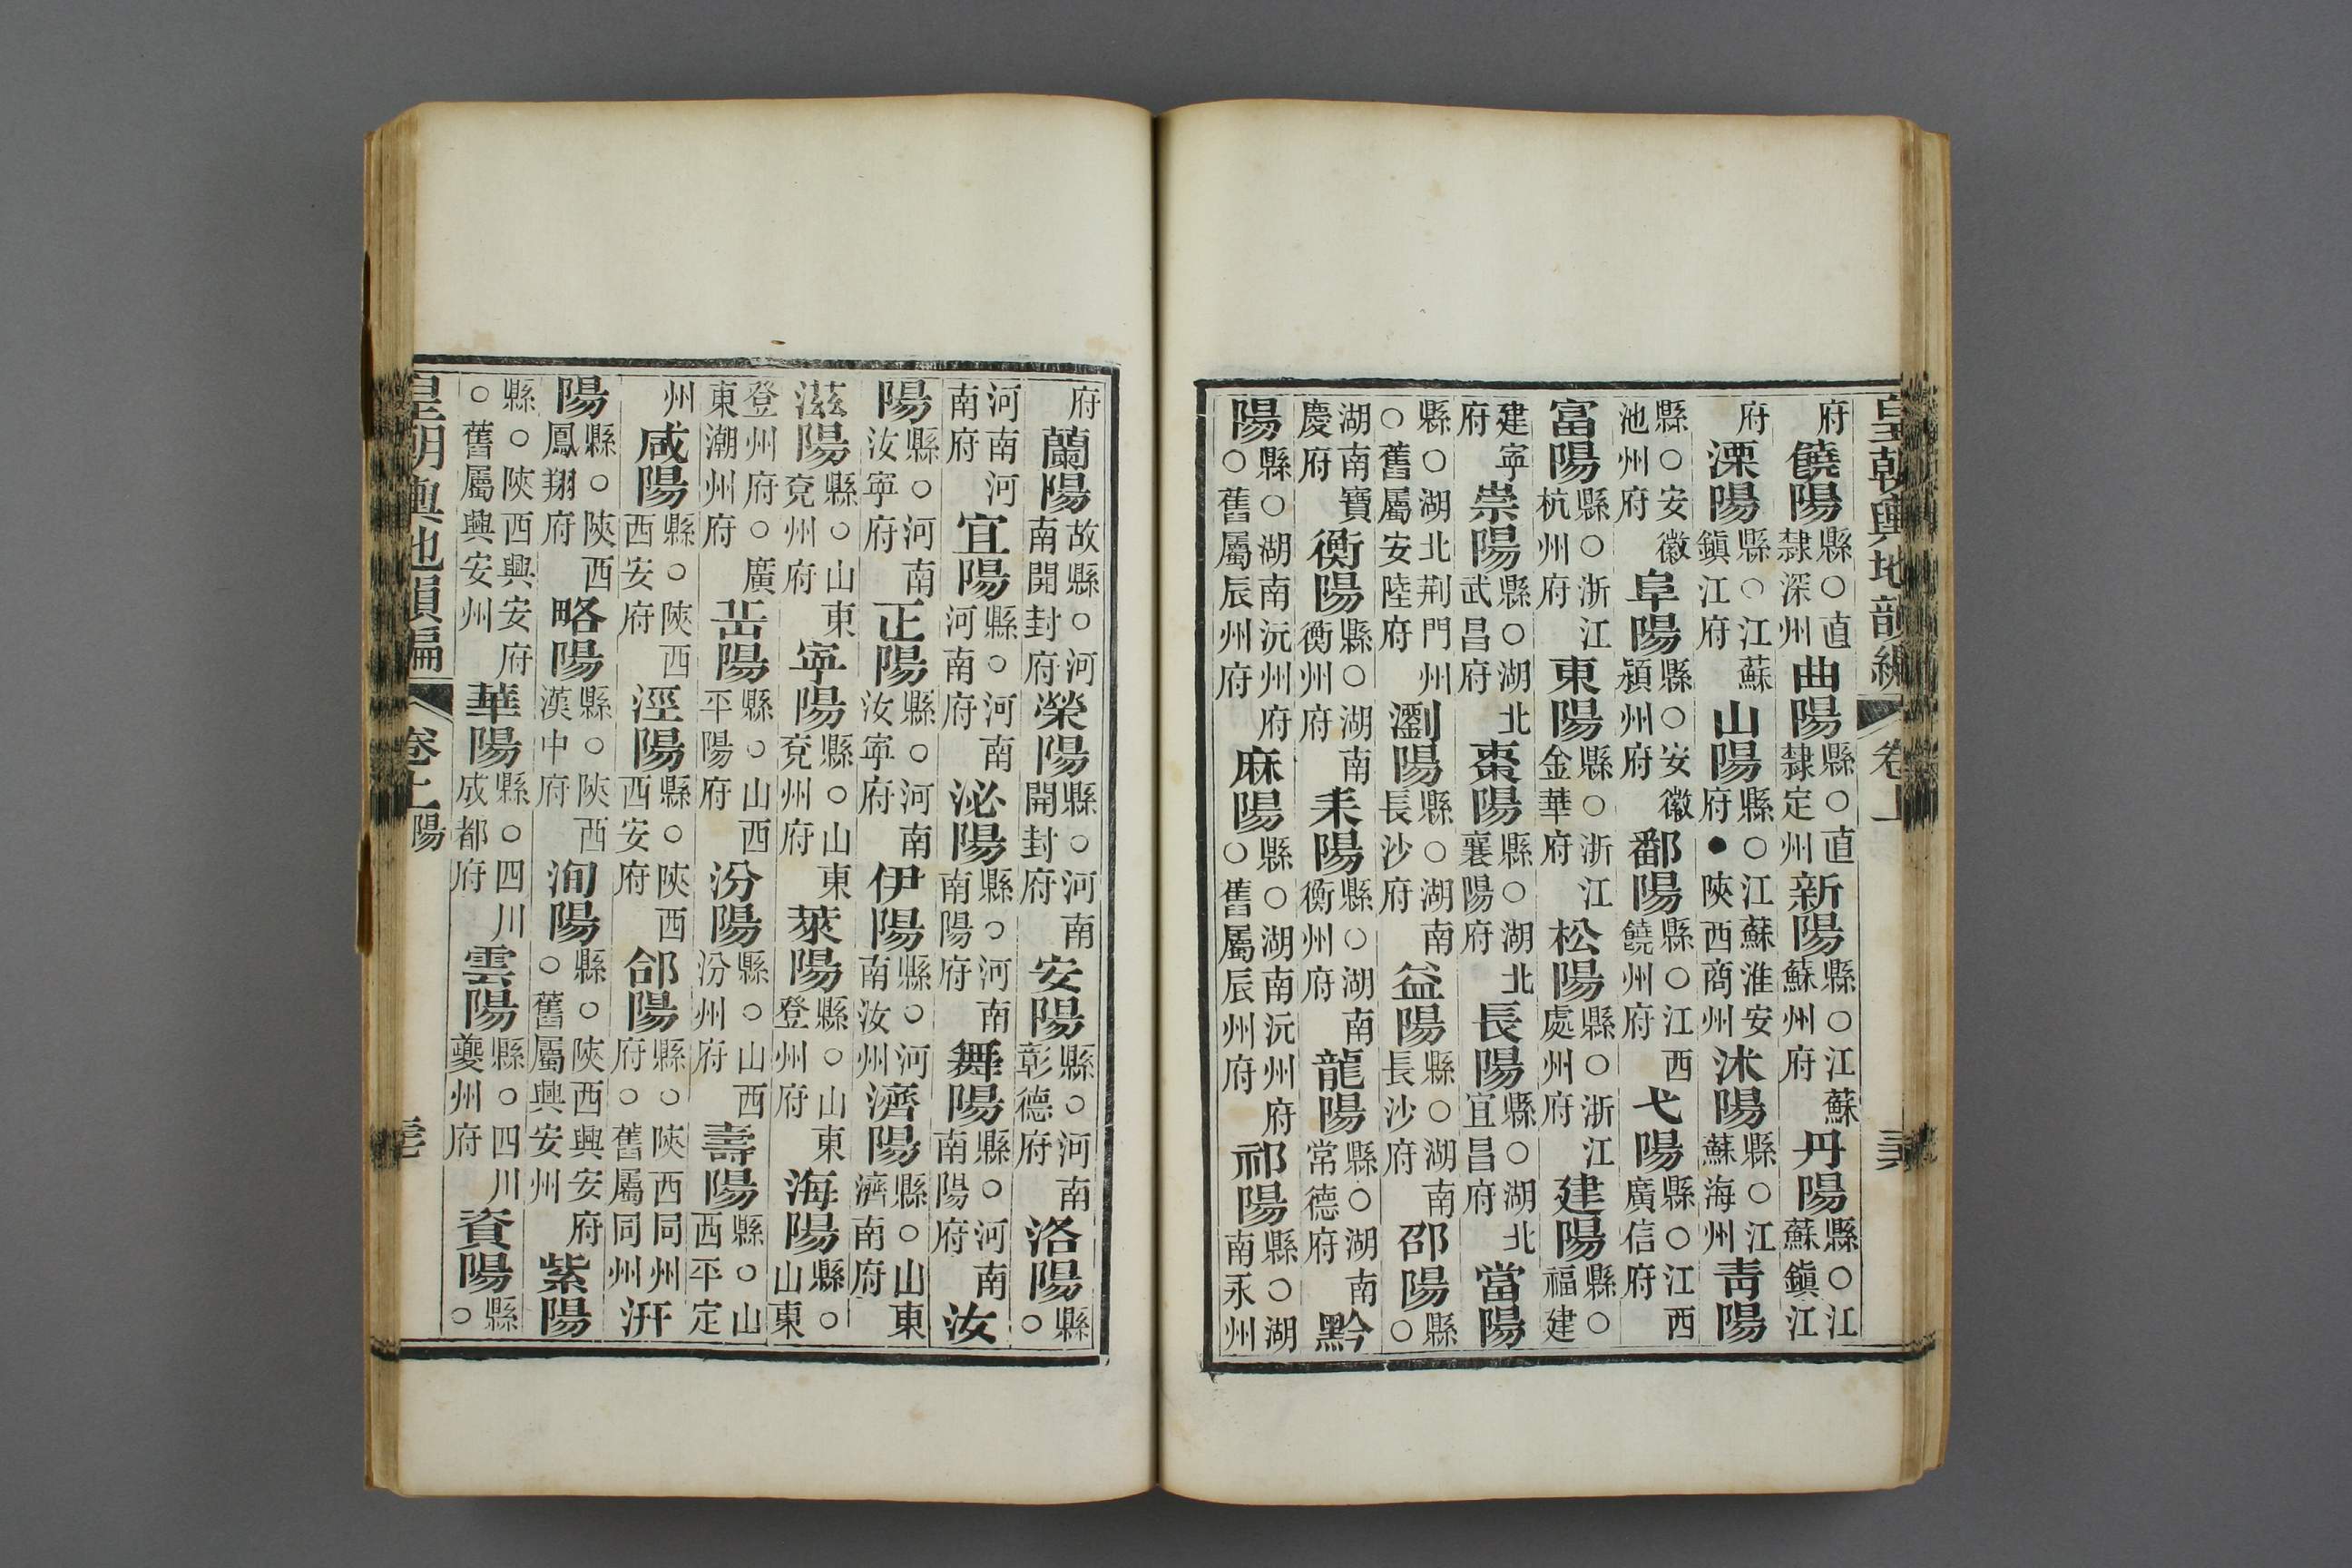 皇朝輿地韻編 卷上
府饒陽縣○直隸深州曲陽縣○直隸定州新陽縣○江蘇蘇州府丹陽縣○江蘇鎭江
府溧陽縣○江蘇鎭江府山陽縣○江蘇淮安府●陝西商州沭陽縣○江蘇海州靑陽
縣○安徽池州府阜陽縣○安徽潁州府鄱陽縣○江西饒州府弋陽縣○江西廣信府
富陽縣○浙江杭州府東陽縣○浙江金華府松陽縣○浙江處州府建陽縣○福建
建寧府崇陽縣○湖北武昌府棗陽縣○湖北襄陽府長陽縣○湖北宜昌府當陽
縣○湖北荆門州○舊屬安陸府瀏陽縣○湖南長沙府益陽縣○湖南長沙府邵陽縣○
湖南寶慶府衡陽縣○湖南衡州府耒陽縣○湖南衡州府龍陽縣○湖南常德府黔
陽縣○湖南沅州府○舊屬辰州府麻陽縣○湖南沅州府○舊屬辰州府祁陽縣○湖南永州
府蘭陽故縣○河南開封府滎陽縣○河南開封府安陽縣○河南彰德府洛陽縣○
河南河南府宜陽縣○河南河南府泌陽縣○河南南陽府舞陽縣○河南南陽府汝
陽縣○河南汝寧府正陽縣○河南汝寧府伊陽縣○河南汝州濟陽縣○山東濟南府
滋陽縣○山東兗州府寧陽縣○山東兗州府萊陽縣○山東登州府海陽縣○山東
登州府○廣東潮州府岳陽縣○山西平陽府汾陽縣○山西汾州府壽陽縣○山西平定
州咸陽縣○陝西西安府涇陽縣○陝西西安府郃陽縣○陝西同州府○舊屬同州汧
陽縣○陝西鳳翔府略陽縣○陝西漢中府洵陽縣○陝西興安府○舊屬興安州紫陽
縣○陝西興安府○舊屬興安州華陽縣○四川成都府雲陽縣○四川夔州府資陽縣○
皇朝輿地韻編 卷上 陽